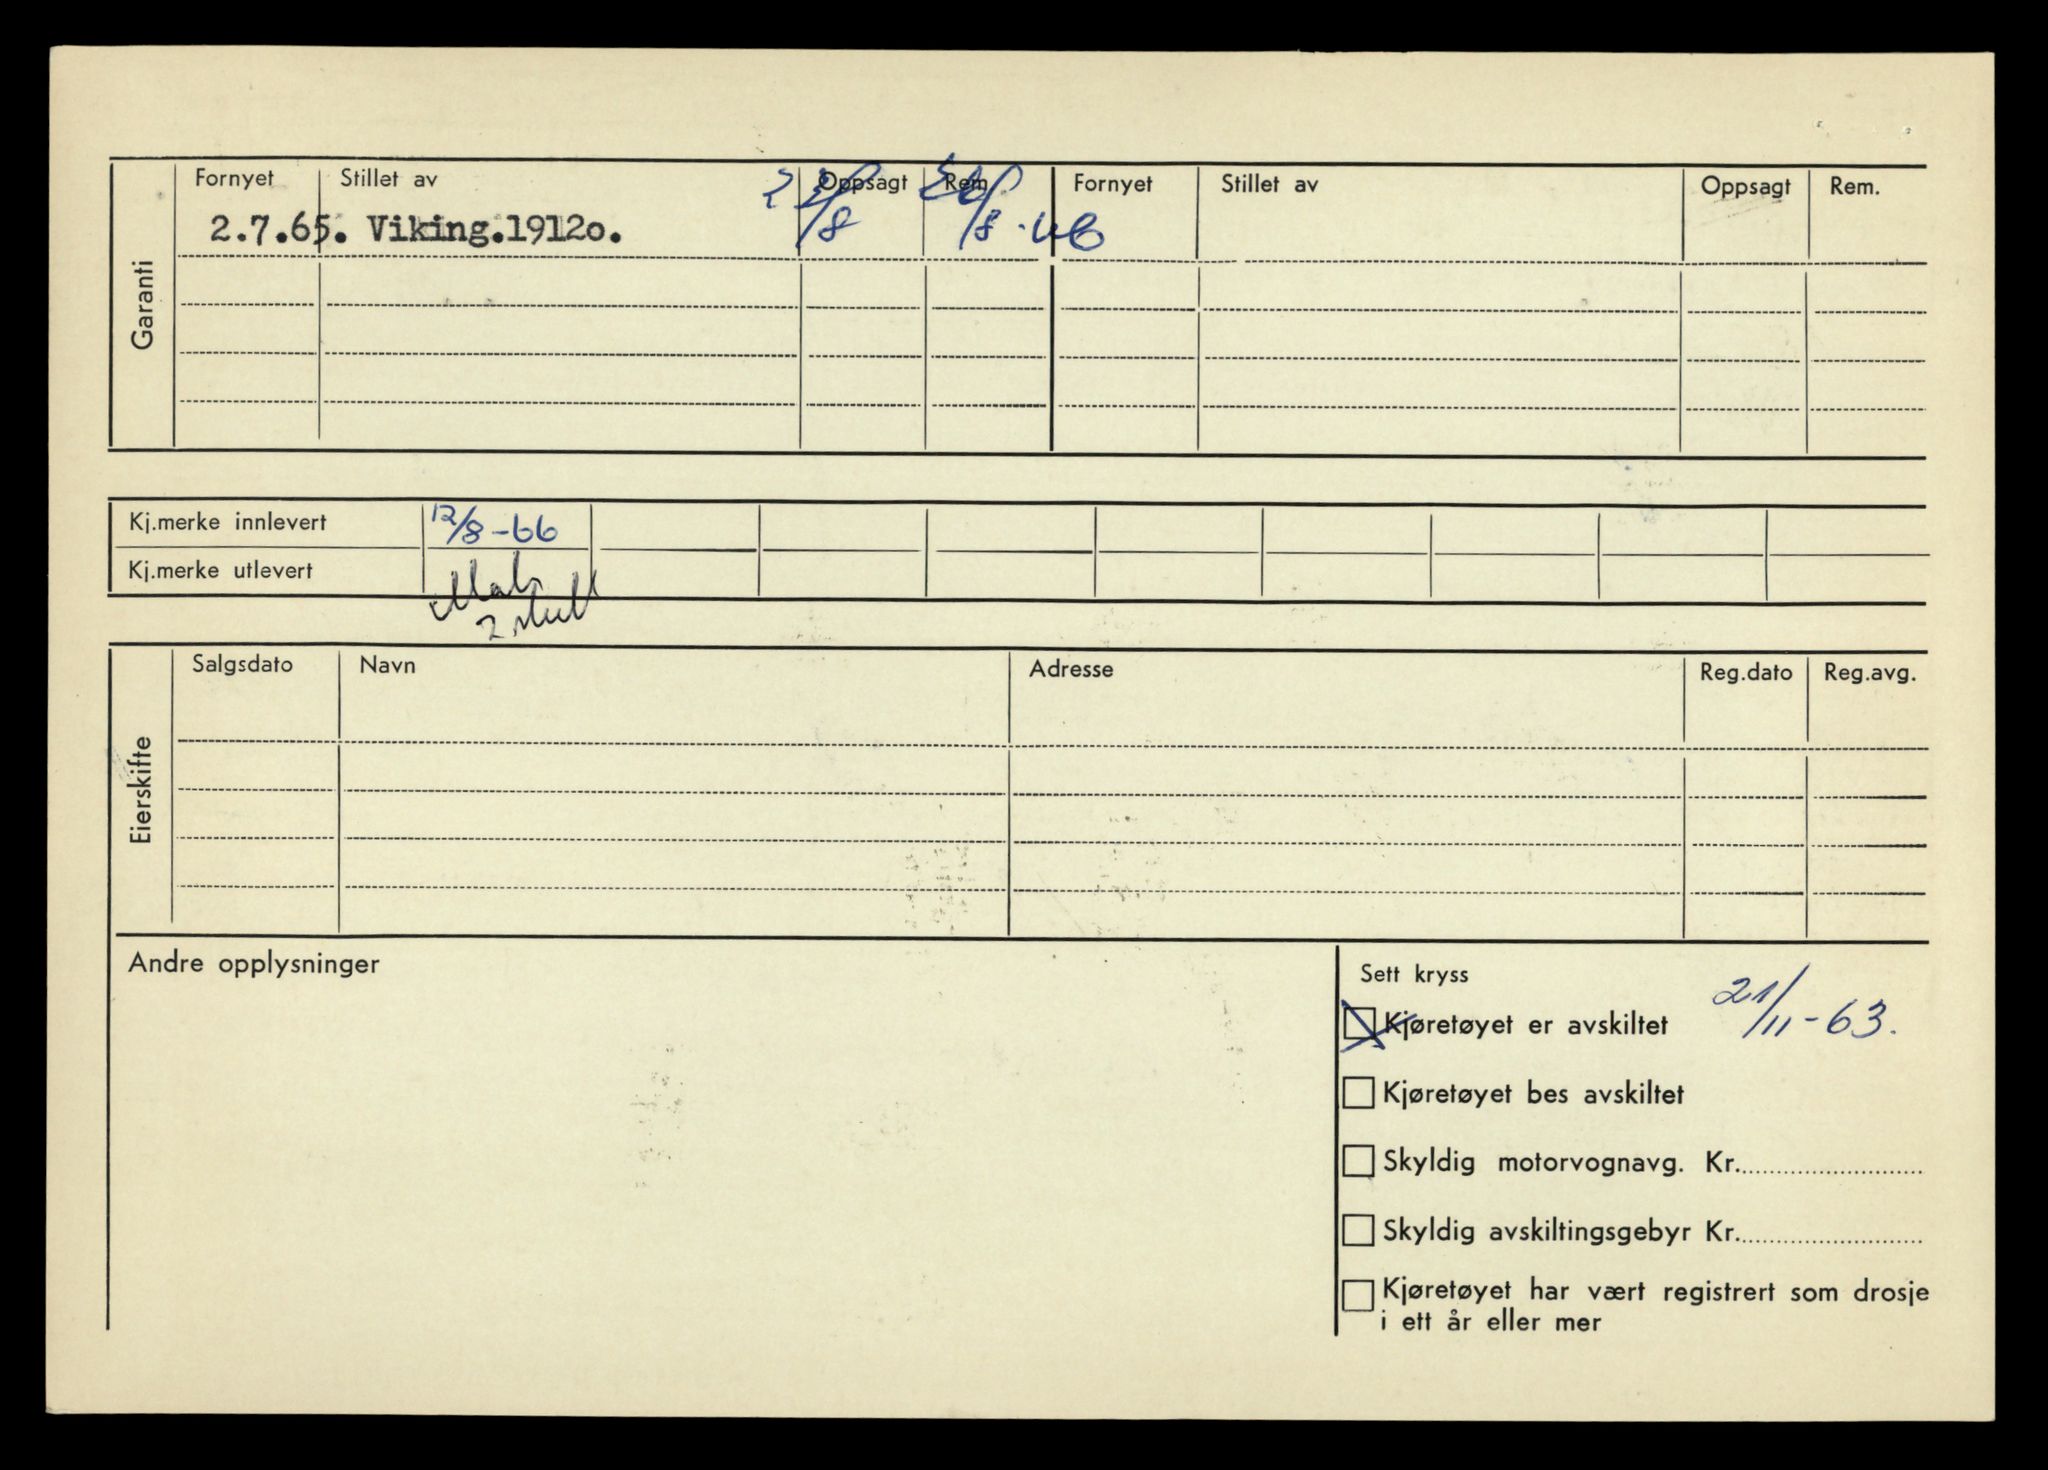 Garanti
Fornyet Stillet av Oppsagt Rem. Fornyet Stillet av Oppsagt Rem.
2.7.65. Viking.1912o.
Kj.merke innlevert 12/8-66
Kj.merke utlevert
Eierskifte
Salgsdato Navn Adresse Reg.dato Reg.avg.
Andre opplysninger
Sett kryss
Kjøretøyet er avskiltet 21/11-63.
Kjøretøyet bes avskiltet
Skyldig motorvognavg. Kr.
Skyldig avskiltingsgebyr Kr.
Kjøretøyet har vært registrert som drosje
i ett år eller mer